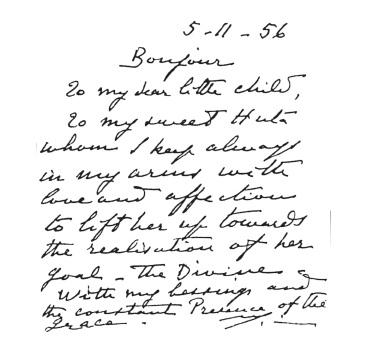 5-11-56
Bonjour
To my dear little child,
To my sweet Huta
whom I keep always
in my arms with
love and affection
to lift her up towards
the realisation of her
goal – the Divine &
With my blessings and
the constant Presence of the
Grace.